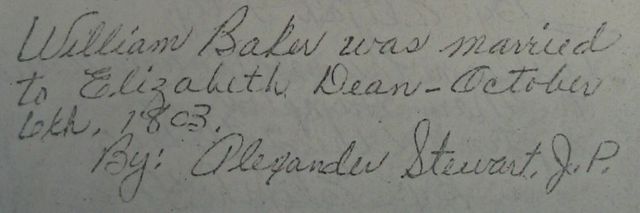 William Baker was married
to Elizabeth Dean - October
6th, 1803.
By: Alexander Stewart, J.P.